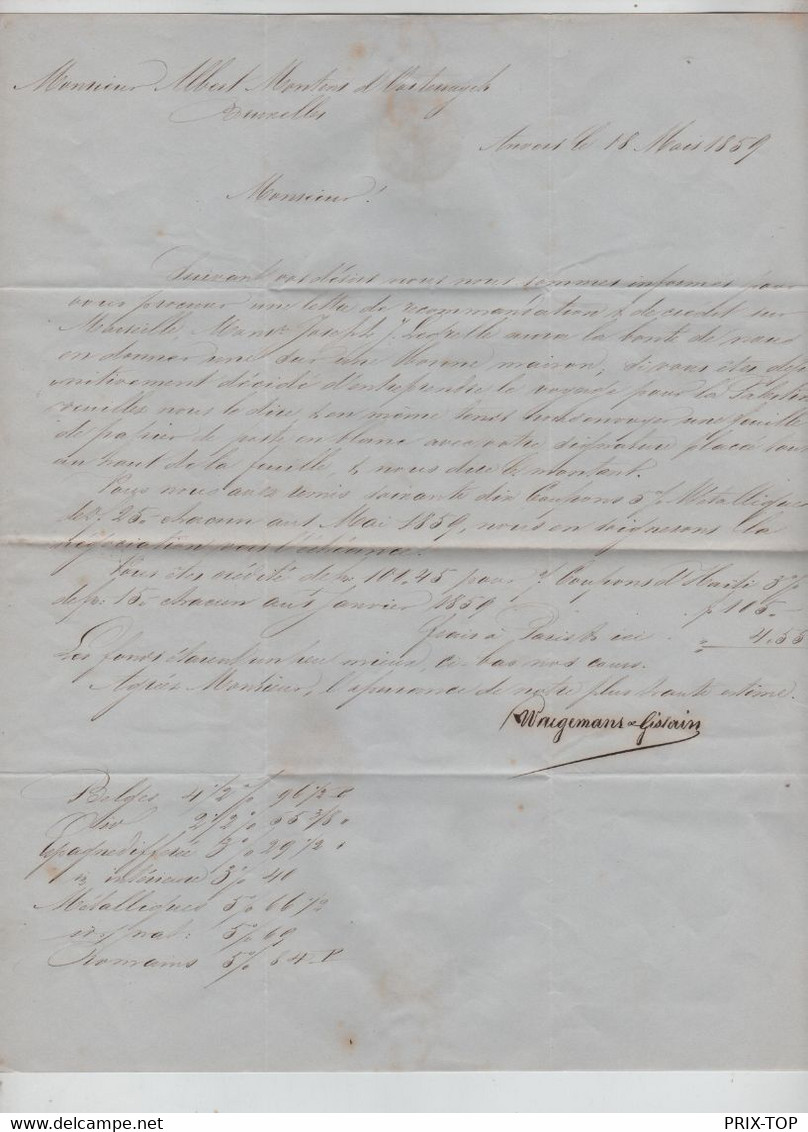 Monsieur Albert Montens d'Oosterwyck
Bruxelles
Anvers le 18 Mars 1859
Monsieur!
Suivant vos désirs nous nous sommes informés pour
vous procurer une lettre de recommandation & de crédit sur
Marseille, Joseph J. Legrelle aura la bonté de nous
en donner une sur une bonne maison, si vous êtes défi
nitivement décidé d'entreprendre le voyage pour la Palestine
veuillez nous le dire & en même temps nous envoyer une feuille
de papier de poste en blanc avec votre signature placée tout
au haut de la feuille, & nous dire le montant.
Vous nous avez remis soixante dix Coupons 5% Métalliques
de 25 - chacun au 1 Mai 1859, nous en soignerons la
négociation vers l'échéance.
Vous êtes crédité de 100,45 pour 7 Coupons d'Haïti 3%
de 15 - chacun au 1 Janvier 1859 f 105 -
frais à Paris & ici " 4.55
Les fonds étaient un peu mieux, ci bas nos cours.
Agréez Monsieur, l'assurance de notre plus haute estime.
Waegemans & Gislain
Belges 4 1/2 % 96 1/2
2 1/2 % 55 3/8
Espagne différée 3% 29 1/2
intérieure 3% 40
Métalliques 5% 66 1/2
nat: 5% 69
Romains 5% 84 P
PRIX-TOP